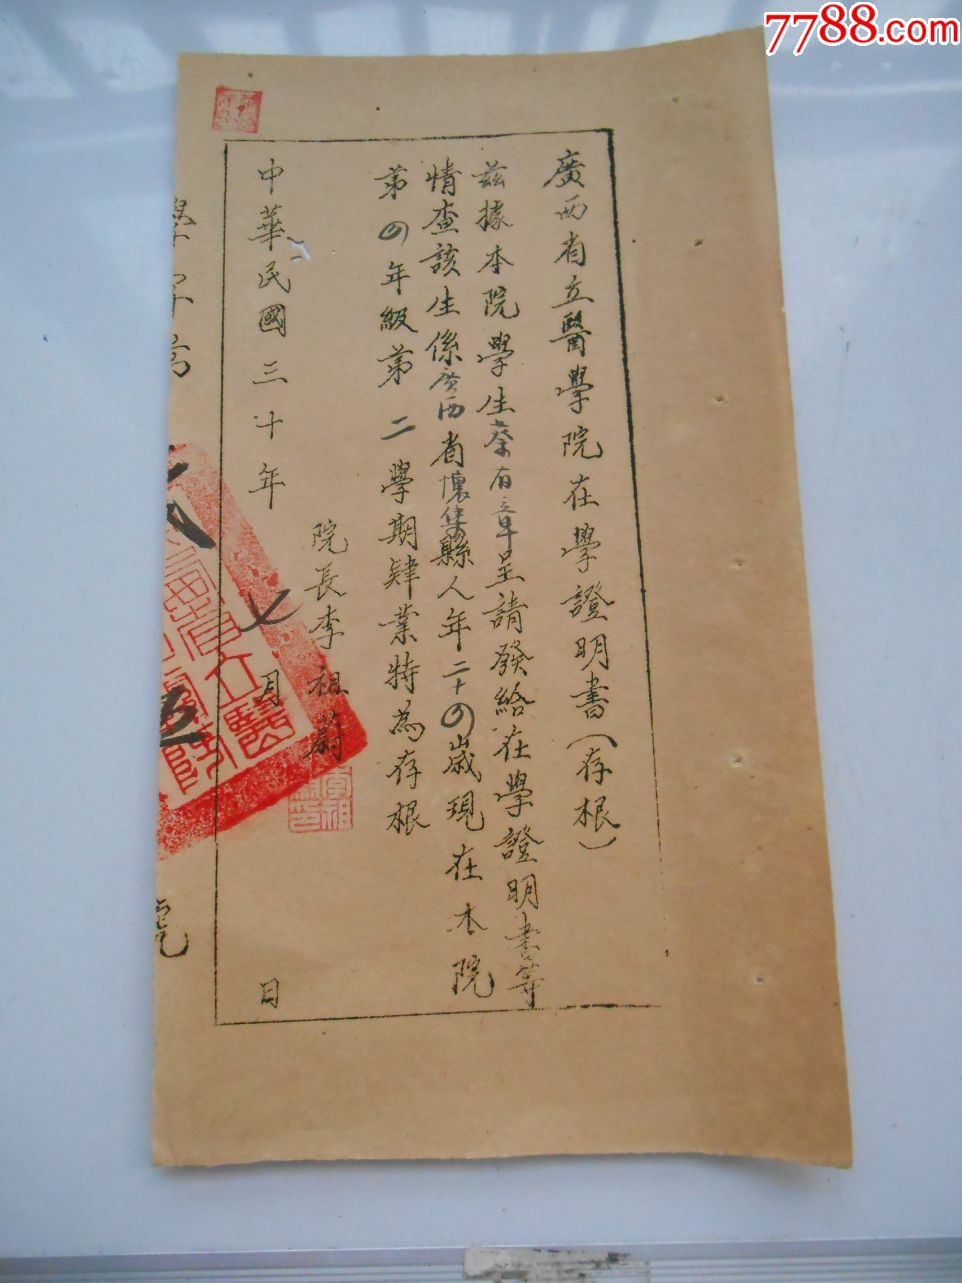 7788.com
廣西省立醫學院在學證明書(存根)
茲據本院學生蔡有章呈請發給在學證明書等
情查該生係廣西省懷集縣人年二十四歲現在本院
第四年級第二學期肄業特為存根
院長李祖蔚
中華民國三十年七月 日
號